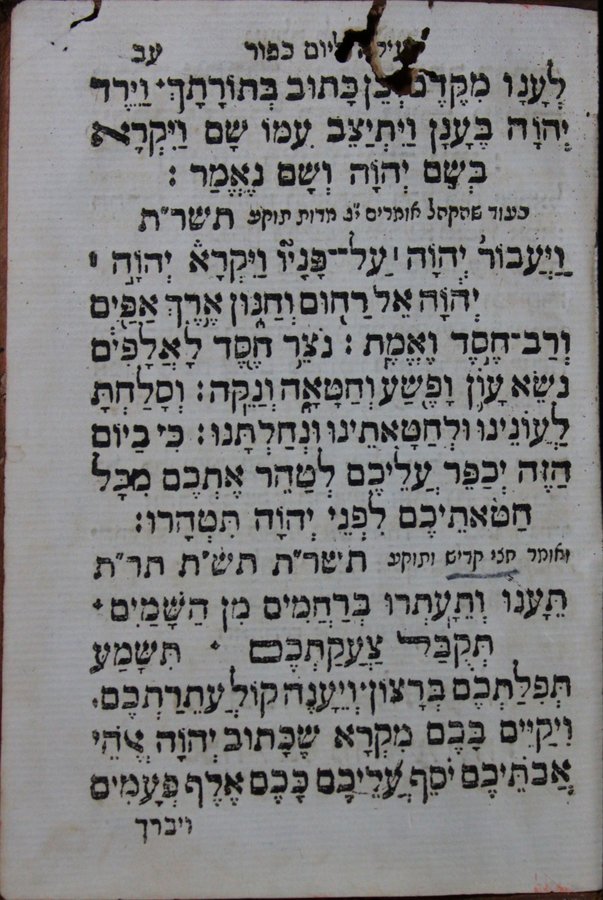 ליום כפור עב
לְעָנָו מִקֶּדֶם כֵּן כָּתוּב בְּתוֹרָתָךְ· וַיֵּרֶד
יְהֹוָה בֶּעָנָן וַיִּתְיַצֵּב עִמּוֹ שָׁם וַיִּקְרָא
בְשֵׁם יְהֹוָה וְשָׁם נֶאֱמַר :
בעוד שהקהל אומרים י״ג מדות תוקע תשר״ת
וַיַּעֲבוֹר יְהֹוָה ׀ עַל־פָּנָיו וַיִּקְרָא יְהֹוָה ׀
יְהֹוָה אֵל רַחוּם וְחַנּוּן אֶרֶךְ אַפַּיִם
וְרַב־חֶסֶד וֶאֱמֶת : נֹצֵר חֶסֶד לָאֲלָפִים
נֹשֵׂא עָוֹן וָפֶשַׁע וְחַטָּאָה וְנַקֵּה : וְסָלַחְתָּ
לַעֲוֹנֵינוּ וּלְחַטָּאתֵינוּ וּנְחַלְתָּנוּ : כִּי בַיּוֹם
הַזֶּה יְכַפֵּר עֲלֵיכֶם לְטַהֵר אֶתְכֶם מִכָּל
חַטֹּאתֵיכֶם לִפְנֵי יְהֹוָה תִּטְהָרוּ :
ואומר חצי קדיש ותוקע תשר״ת תש״ת תר״ת
תֵּעָנוּ וְתֵעָתְרוּ בְּרַחֲמִים מִן הַשָּׁמַיִם·
תְּקֻבַּל צַעֲקַתְכֶם · תִּשָּׁמַע
תְּפִלַּתְכֶם בְּרָצוֹן· וְיֵעָנֶה קוֹל עֲתֵרַתְכֶם·
וִיקַיֵּים בָּכֶם מִקְרָא שֶׁכָּתוּב יְהֹוָה אֱלֹהֵי
אֲבֹתֵיכֶם יֹסֵף עֲלֵיכֶם כָּכֶם אֶלֶף פְּעָמִים
ויברך